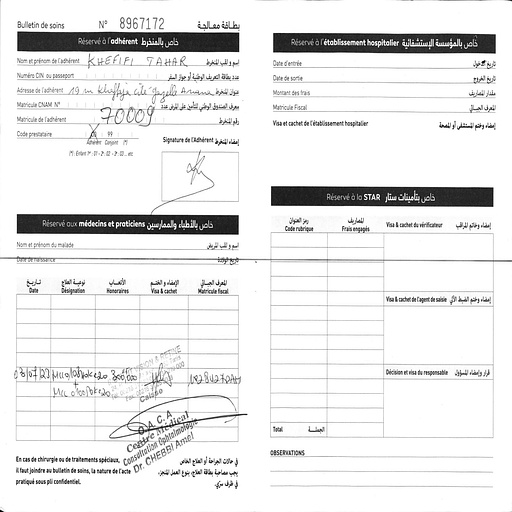 Bulletin de soins N° 8967172 بطاقة معالجة
Réservé à l'adhérent خاص بالمنخرط
Nom et prénom de l'adhérent KHEFIFI TAHAR اسم و لقب المنخرط
Numéro CIN ou passeport عدد بطاقة التعريف الوطنية أو جواز السفر
Adresse de l'adhérent عنوان المنخرط
Matricule CNAM N° معرف الصندوق الوطني للتأمين على المرض عدد
Matricule de l'adhérent 70009 رقم المنخرط
Code prestataire 00 99
Adhérent Conjoint (*)
(*) : Enfant 1er : 01 - 2 : 02 - 3 : 03 ... etc
Signature de l'Adhérent إمضاء المنخرط
Réservé aux médecins et praticiens خاص بالأطباء والممارسين
Nom et prénom du malade اسم و لقب المريض
Date de naissance تاريخ الولادة
تاريخ نوعية العلاج الأتعاب الإمضاء و الختم المعرف الجبائي
Date Désignation Honoraires Visa & cachet Matricule fiscal
300,000
O A C A
Centre Medical
Consultation Ophtalmologie
Dr. CHEBBI Amel
En cas de chirurgie ou de traitements spéciaux,
il faut joindre au bulletin de soins, la nature de l'acte
pratiqué sous pli confidentiel.
في حالات الجراحة أو العلاج الخاص
يجب مصاحبة بطاقة العلاج، بنوع العمل المنجز،
في ظرف سري.
Réservé à l'établissement hospitalier خاص بالمؤسسة الإستشفائية
Date d'entrée تاريخ الدخول
Date de sortie تاريخ الخروج
Montant des frais مقدار المصاريف
Matricule Fiscal المعرف الجبائي
Visa et cachet de l'établissement hospitalier إمضاء وختم المستشفى أو المصحة
Réservé à la STAR خاص بتأمينات ستار
رمز العنوان المصاريف
Code rubrique Frais engagés
Visa & cachet du vérificateur إمضاء وخاتم المراقب
Visa & cachet de l'agent de saisie
Décision et visa du responsable قرار وإمضاء المسؤول
Total الجملة
OBSERVATIONS